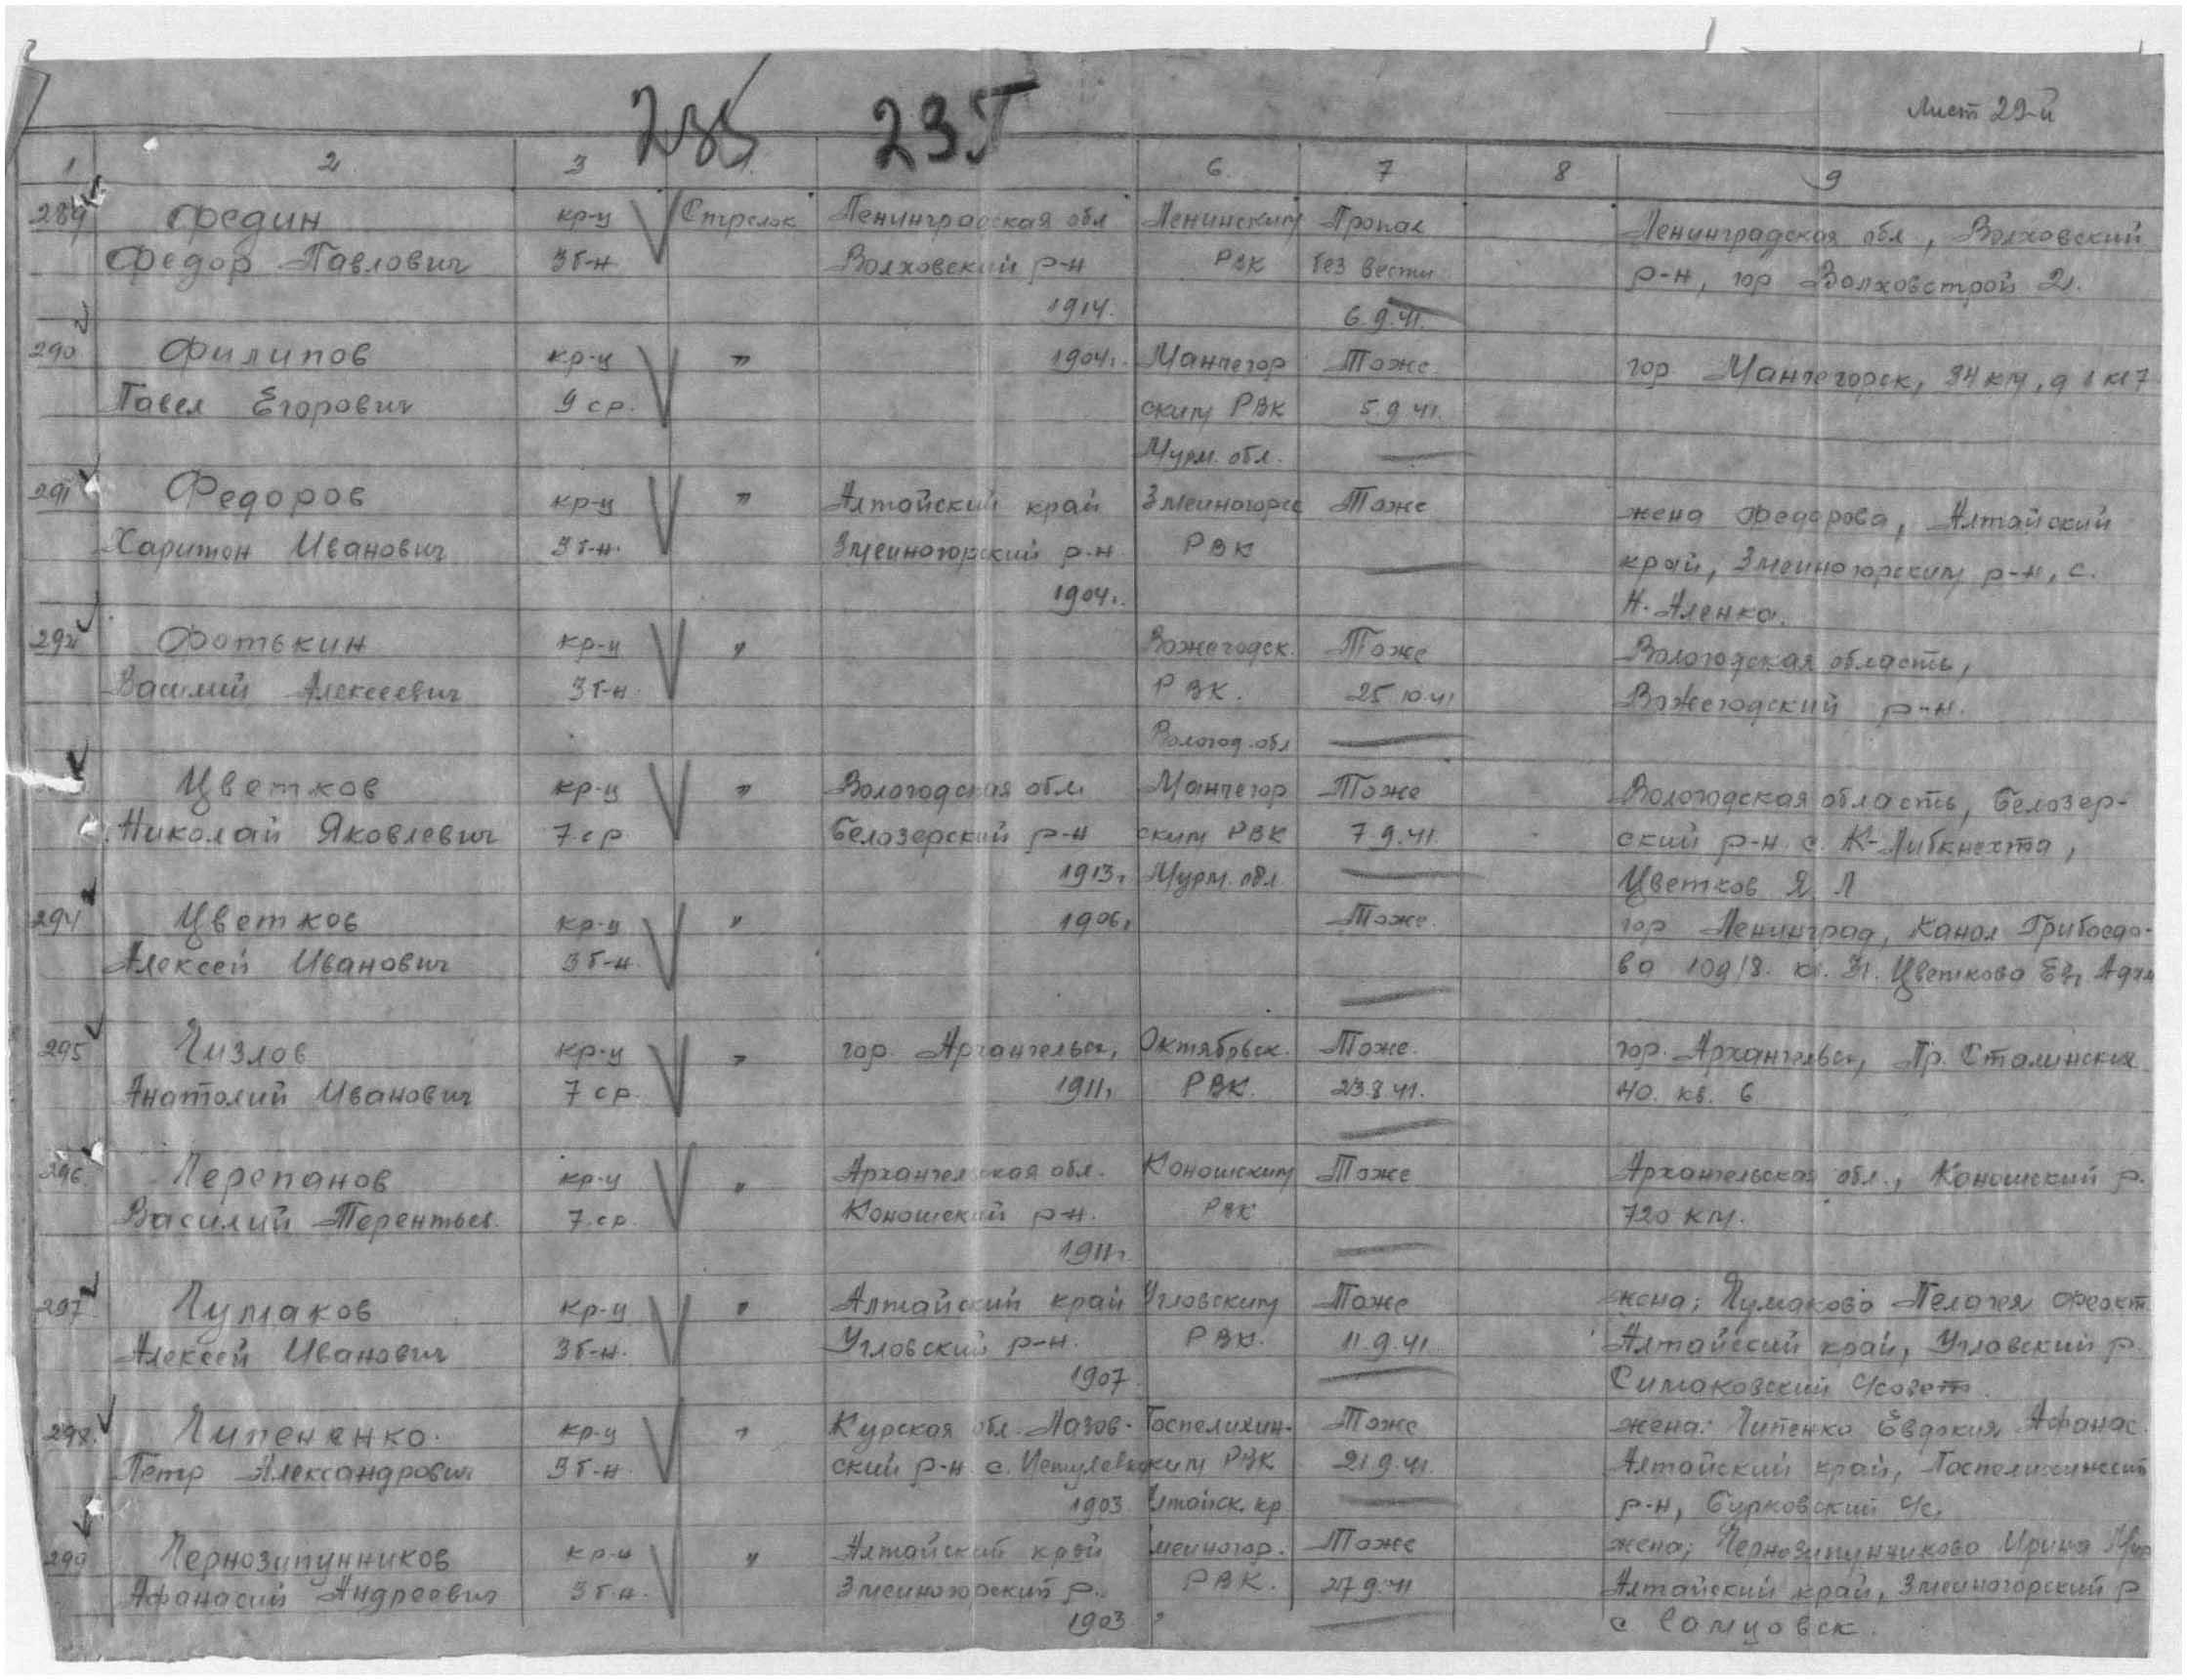 235 235 Лист 29-й
1 2 3 6. 7 8 9
289 Федин кр-ц Стрелок Ленинградская обл Ленинским Пропал Ленинградская обл, Волховский
Федор Павлович 3 б-н Волховский р-н РВК без вести р-н, гор Волховстрой 2.
1914. 6.9.41.
290 Филипов кр-ц " 1904г. Мончегор Тоже гор Мончегорск, 24 км, д 1 кв 7
Павел Егорович 9 ср. ским РВК 5.9.41.
Мурм. обл.
291 Федоров кр-ц " Алтайский край Змеиногорск Тоже жена Федорова, Алтайский
Харитон Иванович 3 б-н. Змеиногорский р-н РВК край, Змеиногорским р-н, с.
1904г. Н. Аленка.
292 Фотькин кр-ц " Вожегодск. Тоже Вологодская область,
Василий Алексеевич 3 б-н. РВК. 25.10.41 Вожегодский р-н.
Вологод. обл
Цветков кр-ц " Вологодская обл. Мончегор Тоже Вологодская область, Белозер-
Николай Яковлевич 7 ср. Белозерский р-н ским РВК 7.9.41. ский р-н. с. К-Либкнехта,
1913г. Мурм. обл Цветков Я. Л
294 Цветков кр-ц " 1906г. Тоже. гор Ленинград, Канал Грибоедо-
Алексей Иванович 3 б-н. ва 109/8. кв. 31. Цветкова
295 Чизлов кр-ц " гор. Архангельск, Октябрьск. Тоже. гор. Архангельск, Пр. Сталинских
Анатолий Иванович 7 ср. 1911г. РВК. 23.8.41. 40. кв. 6
296 Черепанов кр-ц " Архангельская обл. Коношским Тоже Архангельская обл., Коношский р.
Василий Терентьев. 7 ср. Коношский р-н. РВК 720 км.
1911г.
297 Чумаков кр-ц " Алтайский край Угловским Тоже жена; Чумакова Пелагея Феокт.
Алексей Иванович 3 б-н. Угловский р-н. РВК. 11.9.41. Алтайский край, Угловский р.
1907 Симоковский с/совет.
298. Чипененко. кр-ц " Курская обл. Лазов- Госпелихин- Тоже жена: Чипенко Евдокия Афанас.
Петр Александрович 3 б-н. ский р-н. с. ским РВК 21.9.41. Алтайский край,
1903 Алтайск. кр р-н, Бурковский с/с.
299 Чернозипунников кр-ц " Алтайский край меиногор. Тоже жена; Чернозипунникова Ирина
Афанасий Андреевич 3 б-н. Змеиногорский р. РВК. 27.9.41 Алтайский край, Змеиногорский р
1903 с Самцовск.